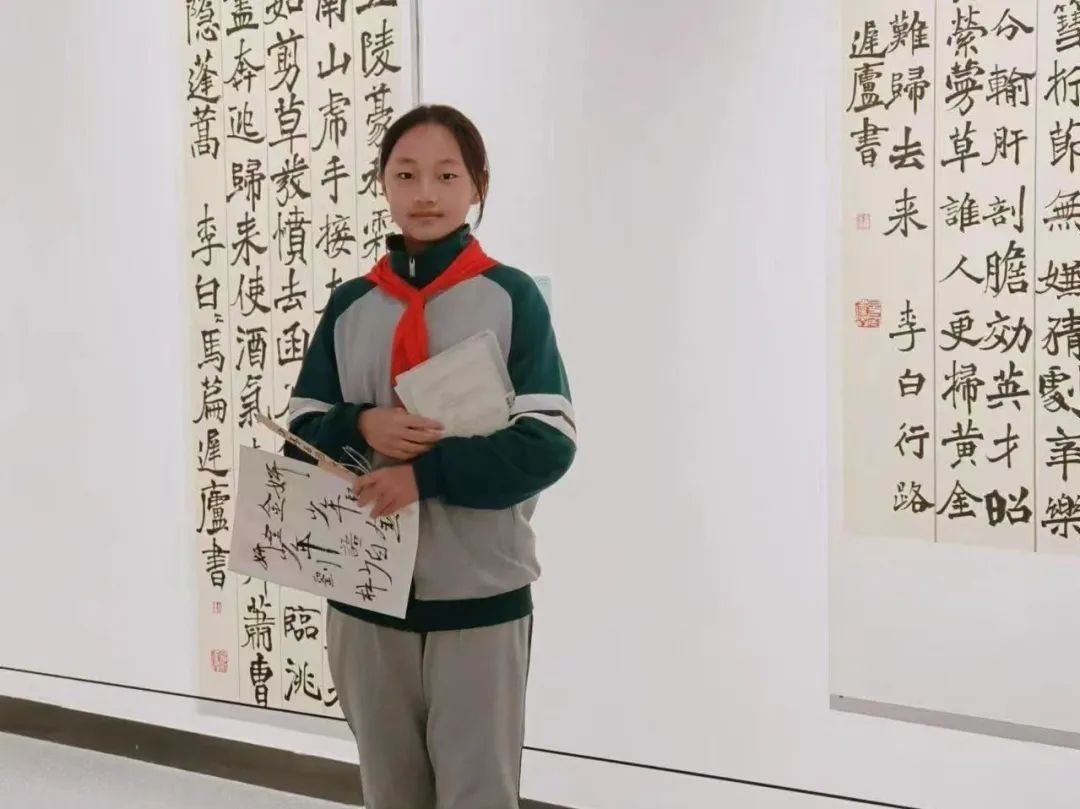 篲折節無嫌猜劇辛樂
分輸肝剖膽効英才昭
縈蔓草誰人更掃黄金
難歸去来 李白行路
遲廬書
五陵豪秋霜
南山虎手接
如剪草發憤去函
臨洮
盡奔逃歸来使酒氣
蕭曹
隱蓬蒿 李白白馬篇遲廬書
少年